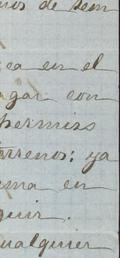 nos de sem
ea en el
gar con
permiso
rrenos; ya
ema en
quir.
ualquier